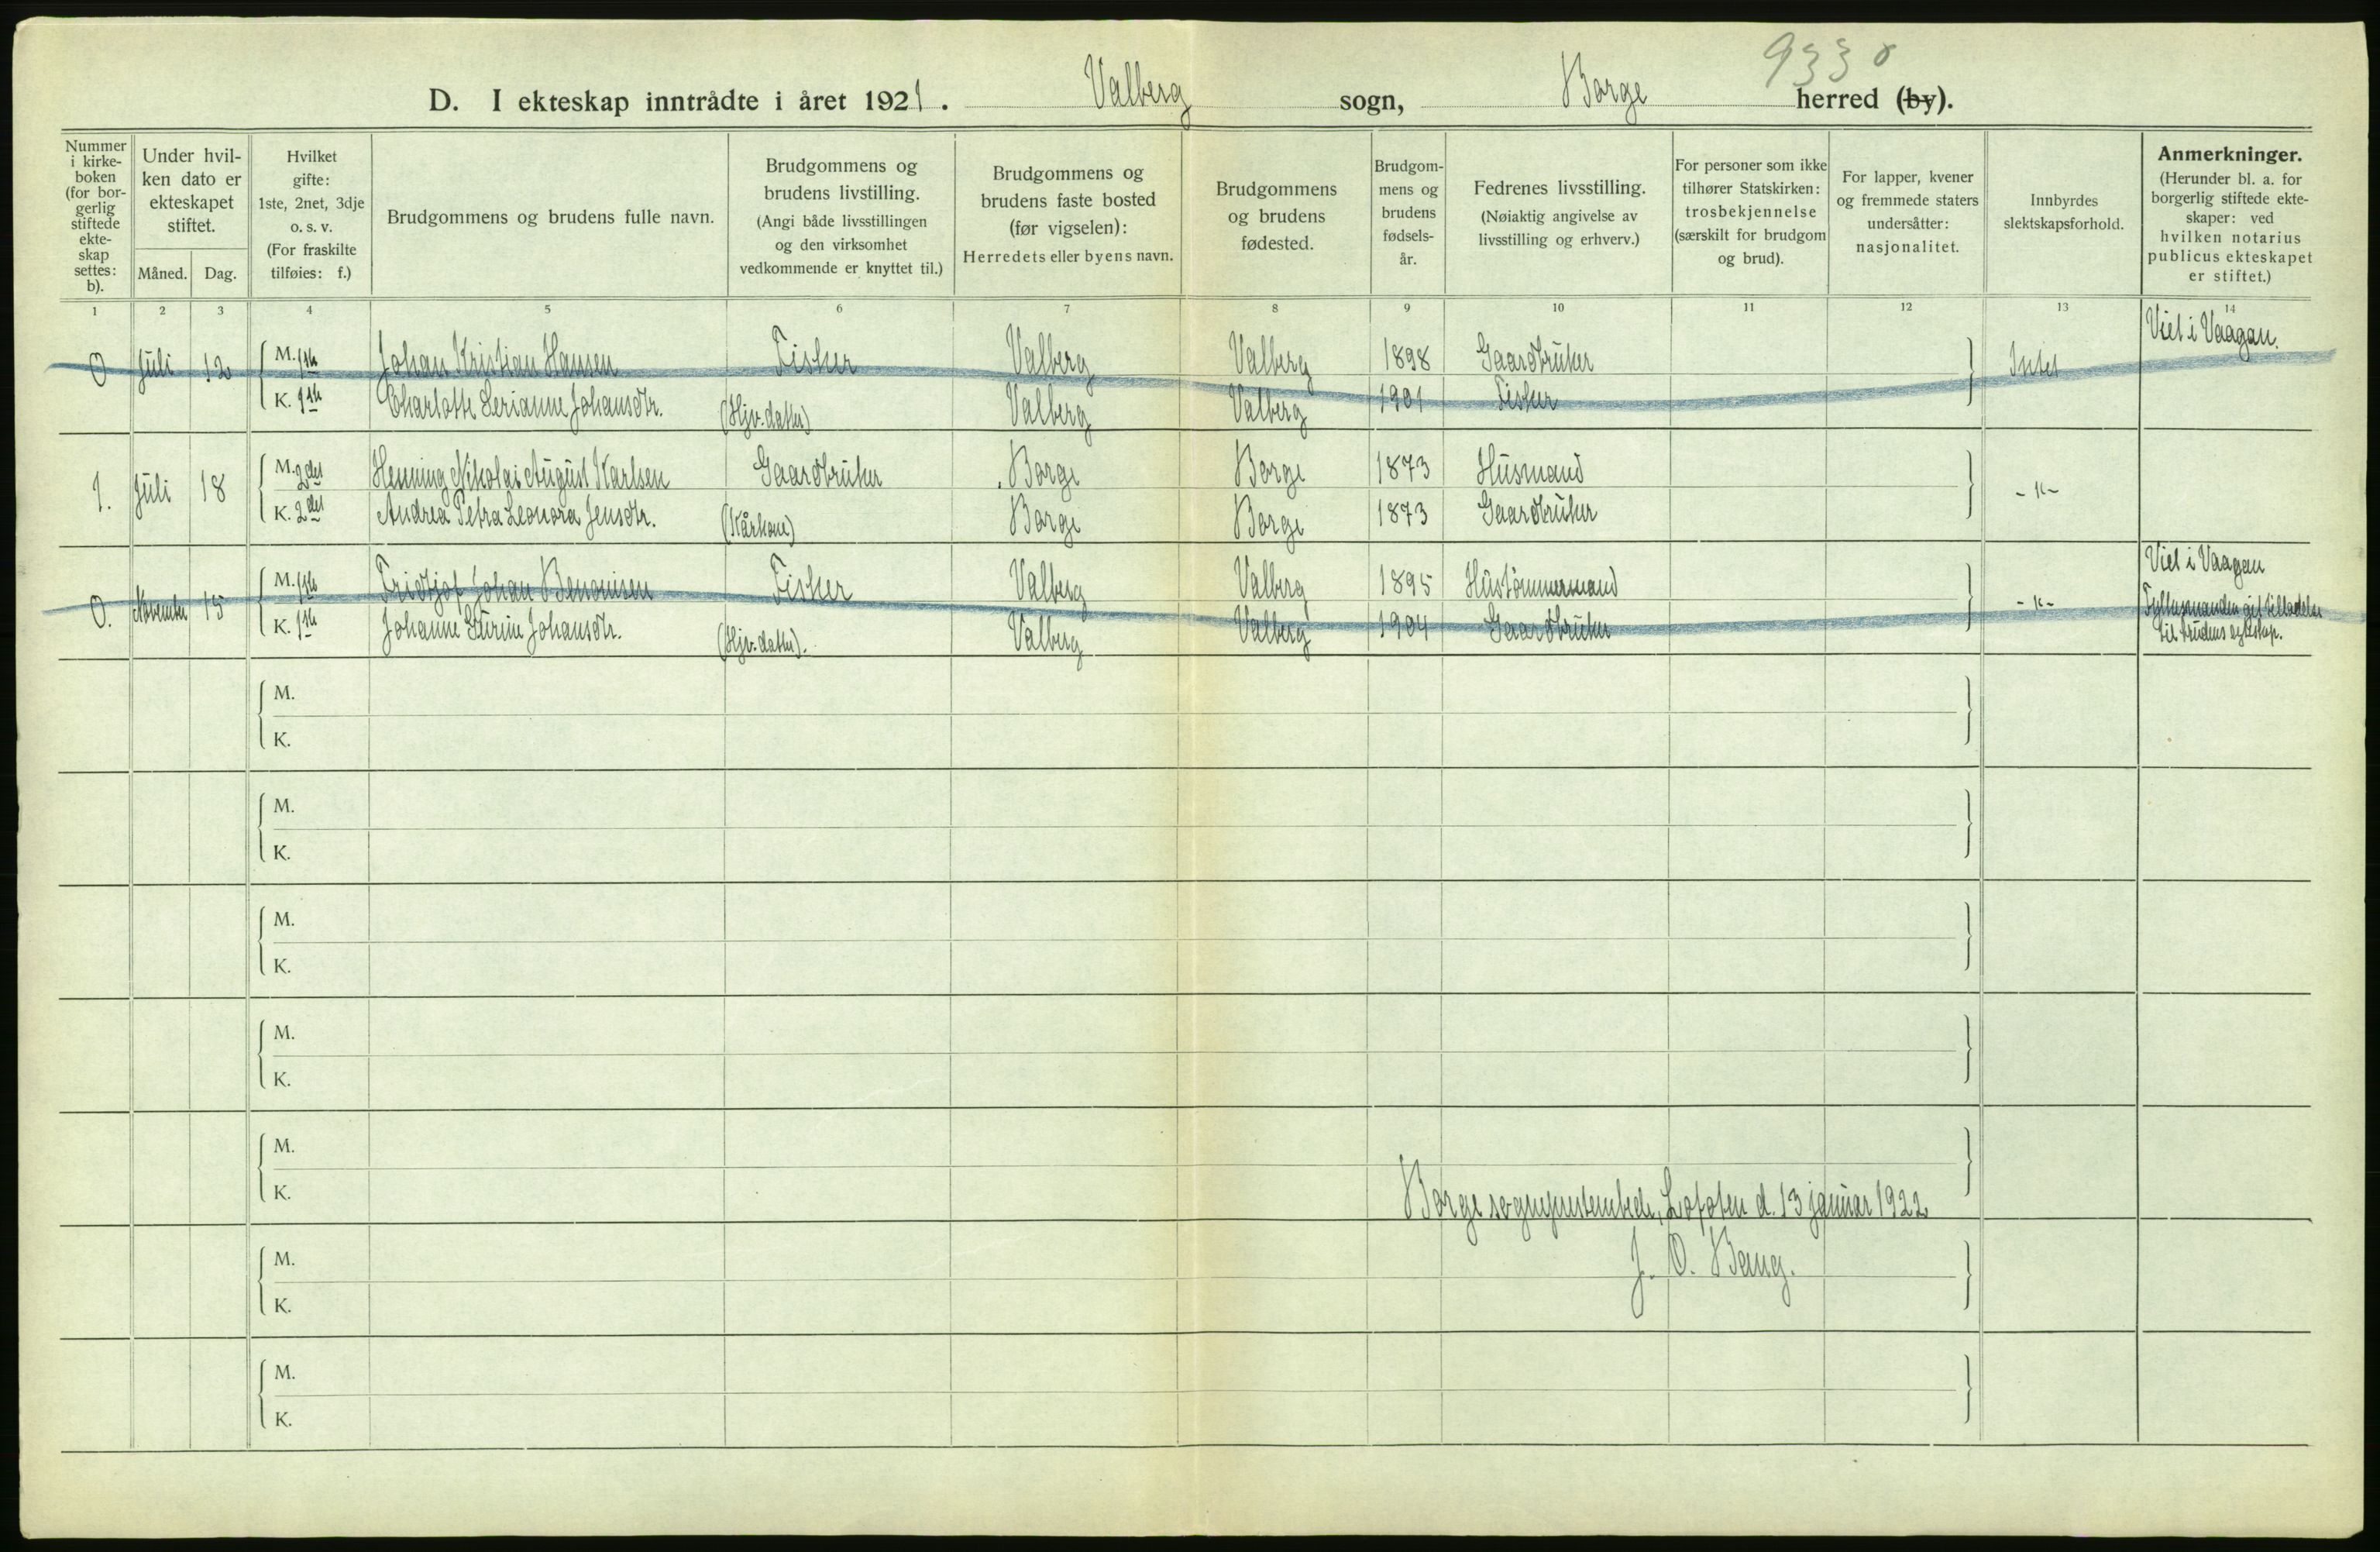 9330
D. I ekteskap inntrådte i året 1921. Valberg sogn, Borge herred (by).
Nummer i kirke-boken (for bor-gerlig stiftede ekte-skap settes: b).
Under hvil-ken dato er ekteskapet stiftet.
Måned. Dag.
Hvilket gifte: 1ste, 2net, 3dje o. s. v. (For fraskilte tilføies: f.)
Brudgommens og brudens fulle navn.
Brudgommens og brudens livstilling. (Angi både livsstillingen og den virksomhet vedkommende er knyttet til.)
Brudgommens og brudens faste bosted (før vigselen): Herredets eller byens navn.
Brudgommens og brudens fødested.
Brudgom-mens og brudens fødsels-år.
Fedrenes livsstilling. (Nøiaktig angivelse av livsstilling og erhverv.)
For personer som ikke tilhører Statskirken: trosbekjennelse (særskilt for brudgom og brud).
For lapper, kvener og fremmede staters undersåtter: nasjonalitet.
Innbyrdes slektskapsforhold.
Anmerkninger. (Herunder bl. a. for borgerlig stiftede ekte-skaper: ved hvilken notarius publicus ekteskapet er stiftet.)
1 2 3 4 5 6 7 8 9 10 11 12 13 14
0 Juli 12 M. 1ste Johan Kristian Hansen Fisker Valberg Valberg 1898 Gaardbruker Intet Viet i Vaagan.
K. 1ste Charlotte Serianne Johansdtr. (Hjv. datter) Valberg Valberg 1901 Fisker
1. Juli 18 M. 2det Henning Nikolai August Karlsen Gaardbruker Borge Borge 1873 Husmand -"-
K. 2det Andrea Petra Leonora Jensdtr. (Kårkone) Borge Borge 1873 Gaardbruker
0. November 15 M. 1ste Fridtjof Johan Benonisen Fisker Valberg Valberg 1895 Hustømmermand -"- Viet i Vaagan
K. 1ste Johanne Johansdtr. (Hjv. datter). Valberg Valberg 1904 Gaardbruker Fylkesmanden git tilladelse til brudens egteskap.
M.
K.
M.
K.
M.
K.
M.
K.
M.
K.
Borge sogneprestembede, Lofoten d. 13 januar 1922
M.
J. O. Bang.
K.
M.
K.